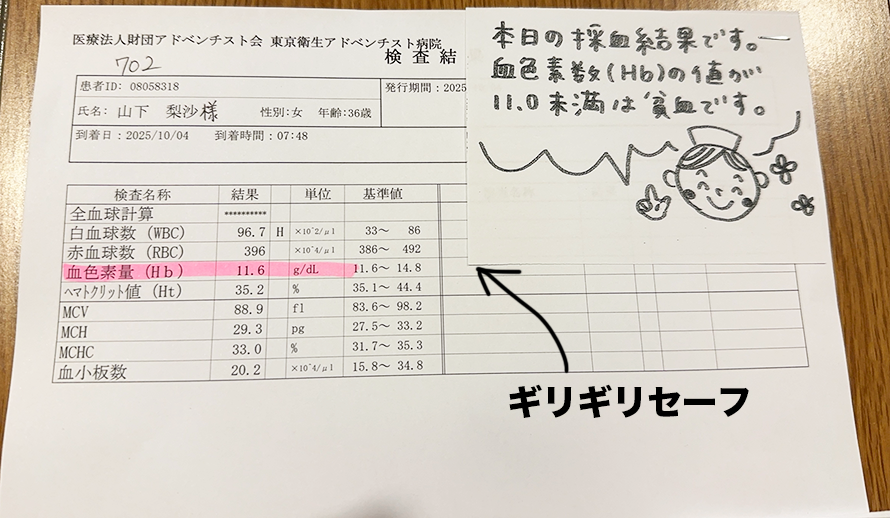 医療法人財団アドベンチスト会 東京衛生アドベンチスト病院
検 査 結
702
患者ID: 08058318
発行期間：2025
氏名： 山下 梨沙様 性別：女 年齢：36歳
到着日：2025/10/04 到着時間：07:48
検査名称 結果 単位 基準値
全血球計算 **********
白血球数 (WBC) 96.7 H ×10^2/μl 33～ 86
赤血球数 (RBC) 396 ×10^4/μl 386～ 492
血色素量 (Hb) 11.6 g/dL 11.6～ 14.8
ヘマトクリット値 (Ht) 35.2 % 35.1～ 44.4
MCV 88.9 fl 83.6～ 98.2
MCH 29.3 pg 27.5～ 33.2
MCHC 33.0 % 31.7～ 35.3
血小板数 20.2 ×10^4/μl 15.8～ 34.8
本日の採血結果です。
血色素数(Hb)の値が
11.0未満は貧血です。
ギリギリセーフ